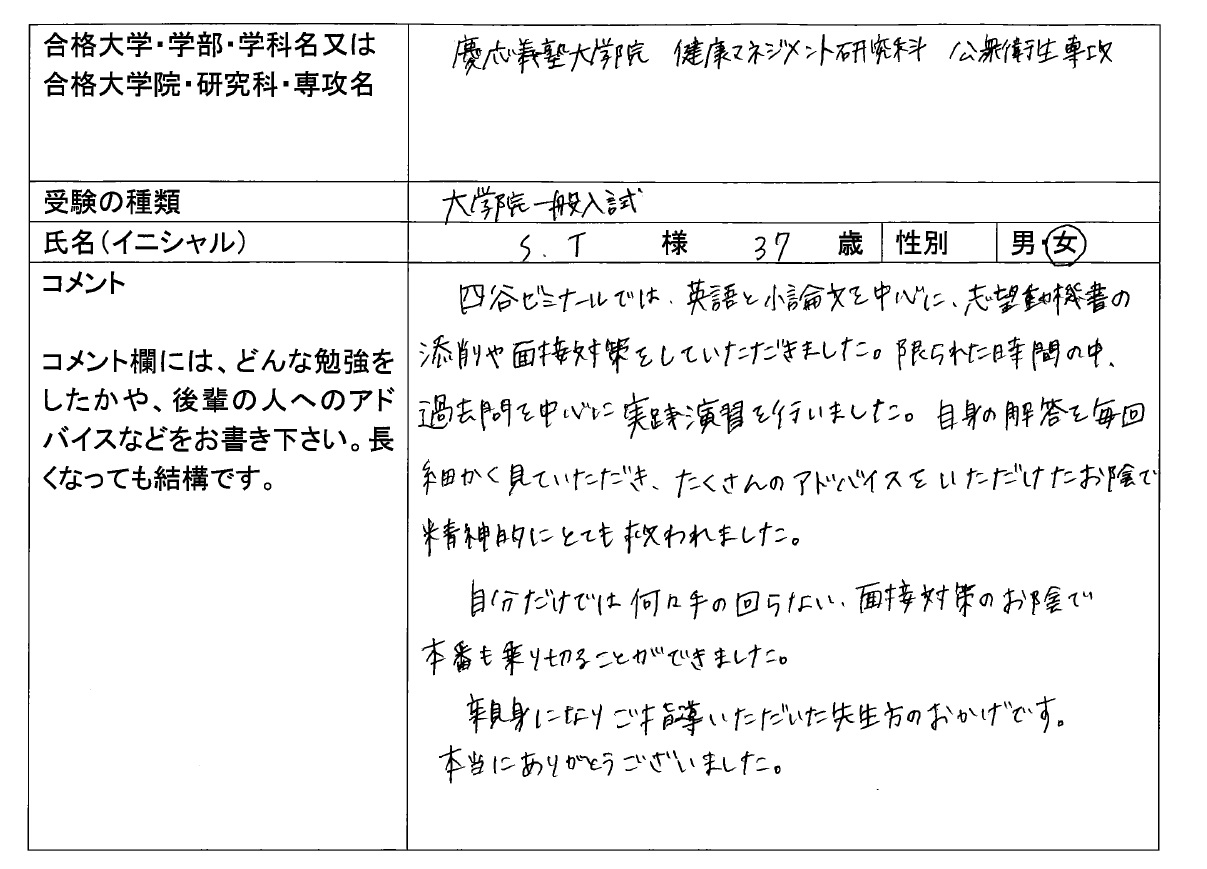 合格大学・学部・学科名又は
合格大学院・研究科・専攻名
慶応義塾大学院 健康マネジメント研究科 公衆衛生専攻
受験の種類
大学院一般入試
氏名(イニシャル)
S.T 様 37 歳 性別 男・女
コメント
コメント欄には、どんな勉強を
したかや、後輩の人へのアド
バイスなどをお書き下さい。長
くなっても結構です。
四谷ゼミナールでは、英語と小論文を中心に、志望動機書の
添削や面接対策をしていただきました。限られた時間の中、
過去問を中心に実践演習を行いました。自身の解答を毎回
細かく見ていただき、たくさんのアドバイスをいただけたお陰で
精神的にとても救われました。
自分だけでは何ロ手の回らない、面接対策のお陰で
本番も乗り切ることができました。
親身になりご指導いただいた先生方のおかげです。
本当にありがとうございました。